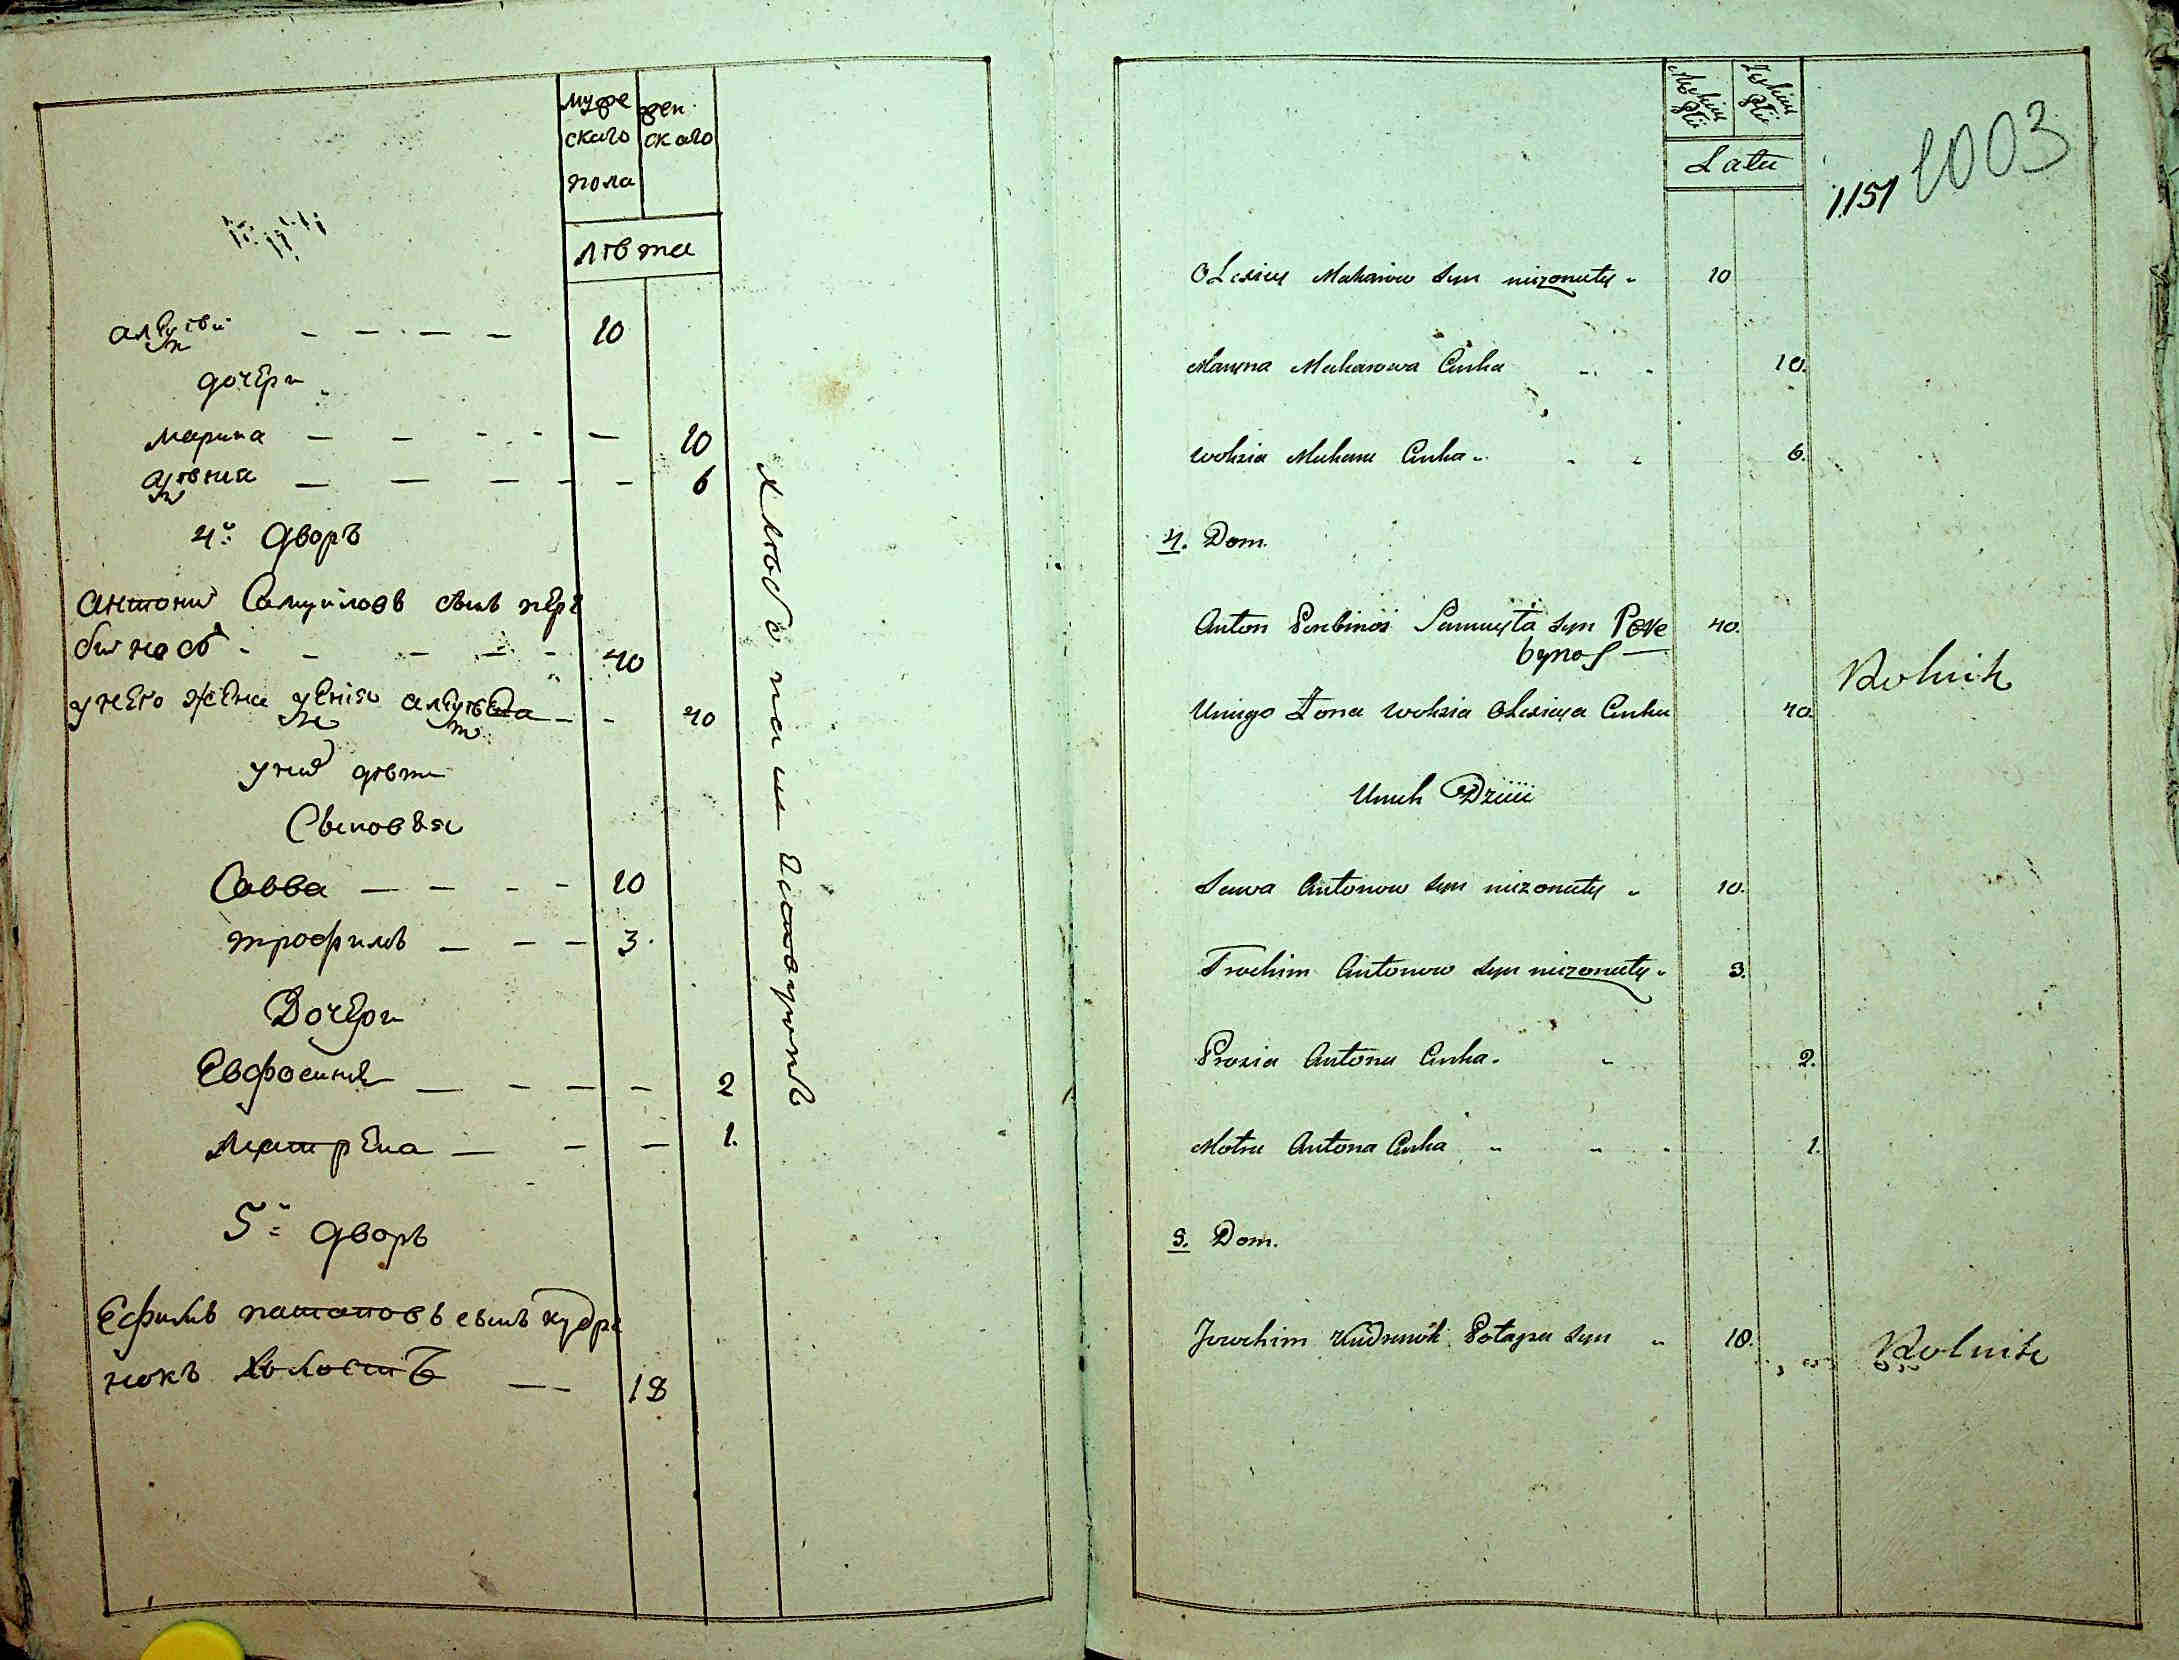 муже
ского
пола
жен
ского
лѣта
алексѣй — — — — 10
дочери
марина — — — — 10
аѳения — — — — 6
4й дворъ
антонъ Самуйловъ сынъ пере
бийносъ — — — 40
унего жена ксения алексѣева — — 40
унихъ дѣти
Сыновья
Савва — — — — 10
трофимъ — — — 3.
Дочери
Евфосиния — — — — 2
матрена — — — 1.
5й дворъ
Ефимъ патаповъ сынъ кудре
нокъ холостъ — — 18
хлѣбопашисторонъ
Męskiej
Płci
Żeńskiej
Płci
Latu
1151 1003
Olexiey Makarow syn niezonuty 10
Maryna Makarowa Curka 10.
Woksia Makara Curka 6.
4. Dom.
Anton Perebinos Samuyła syn Пере 40.
бупоs —
Rolnik
Uniego Żona Woksia Olexieja Curka 40.
Unich Dzieci
Sawa Antonow syn niezonuty 10.
Trochim Antonow syn niezonuty 3.
Prosia Antona Curka 2.
Motra Antona Curka 1.
5. Dom.
Jewchim Kudrenok Potapa syn 18. Rolnik